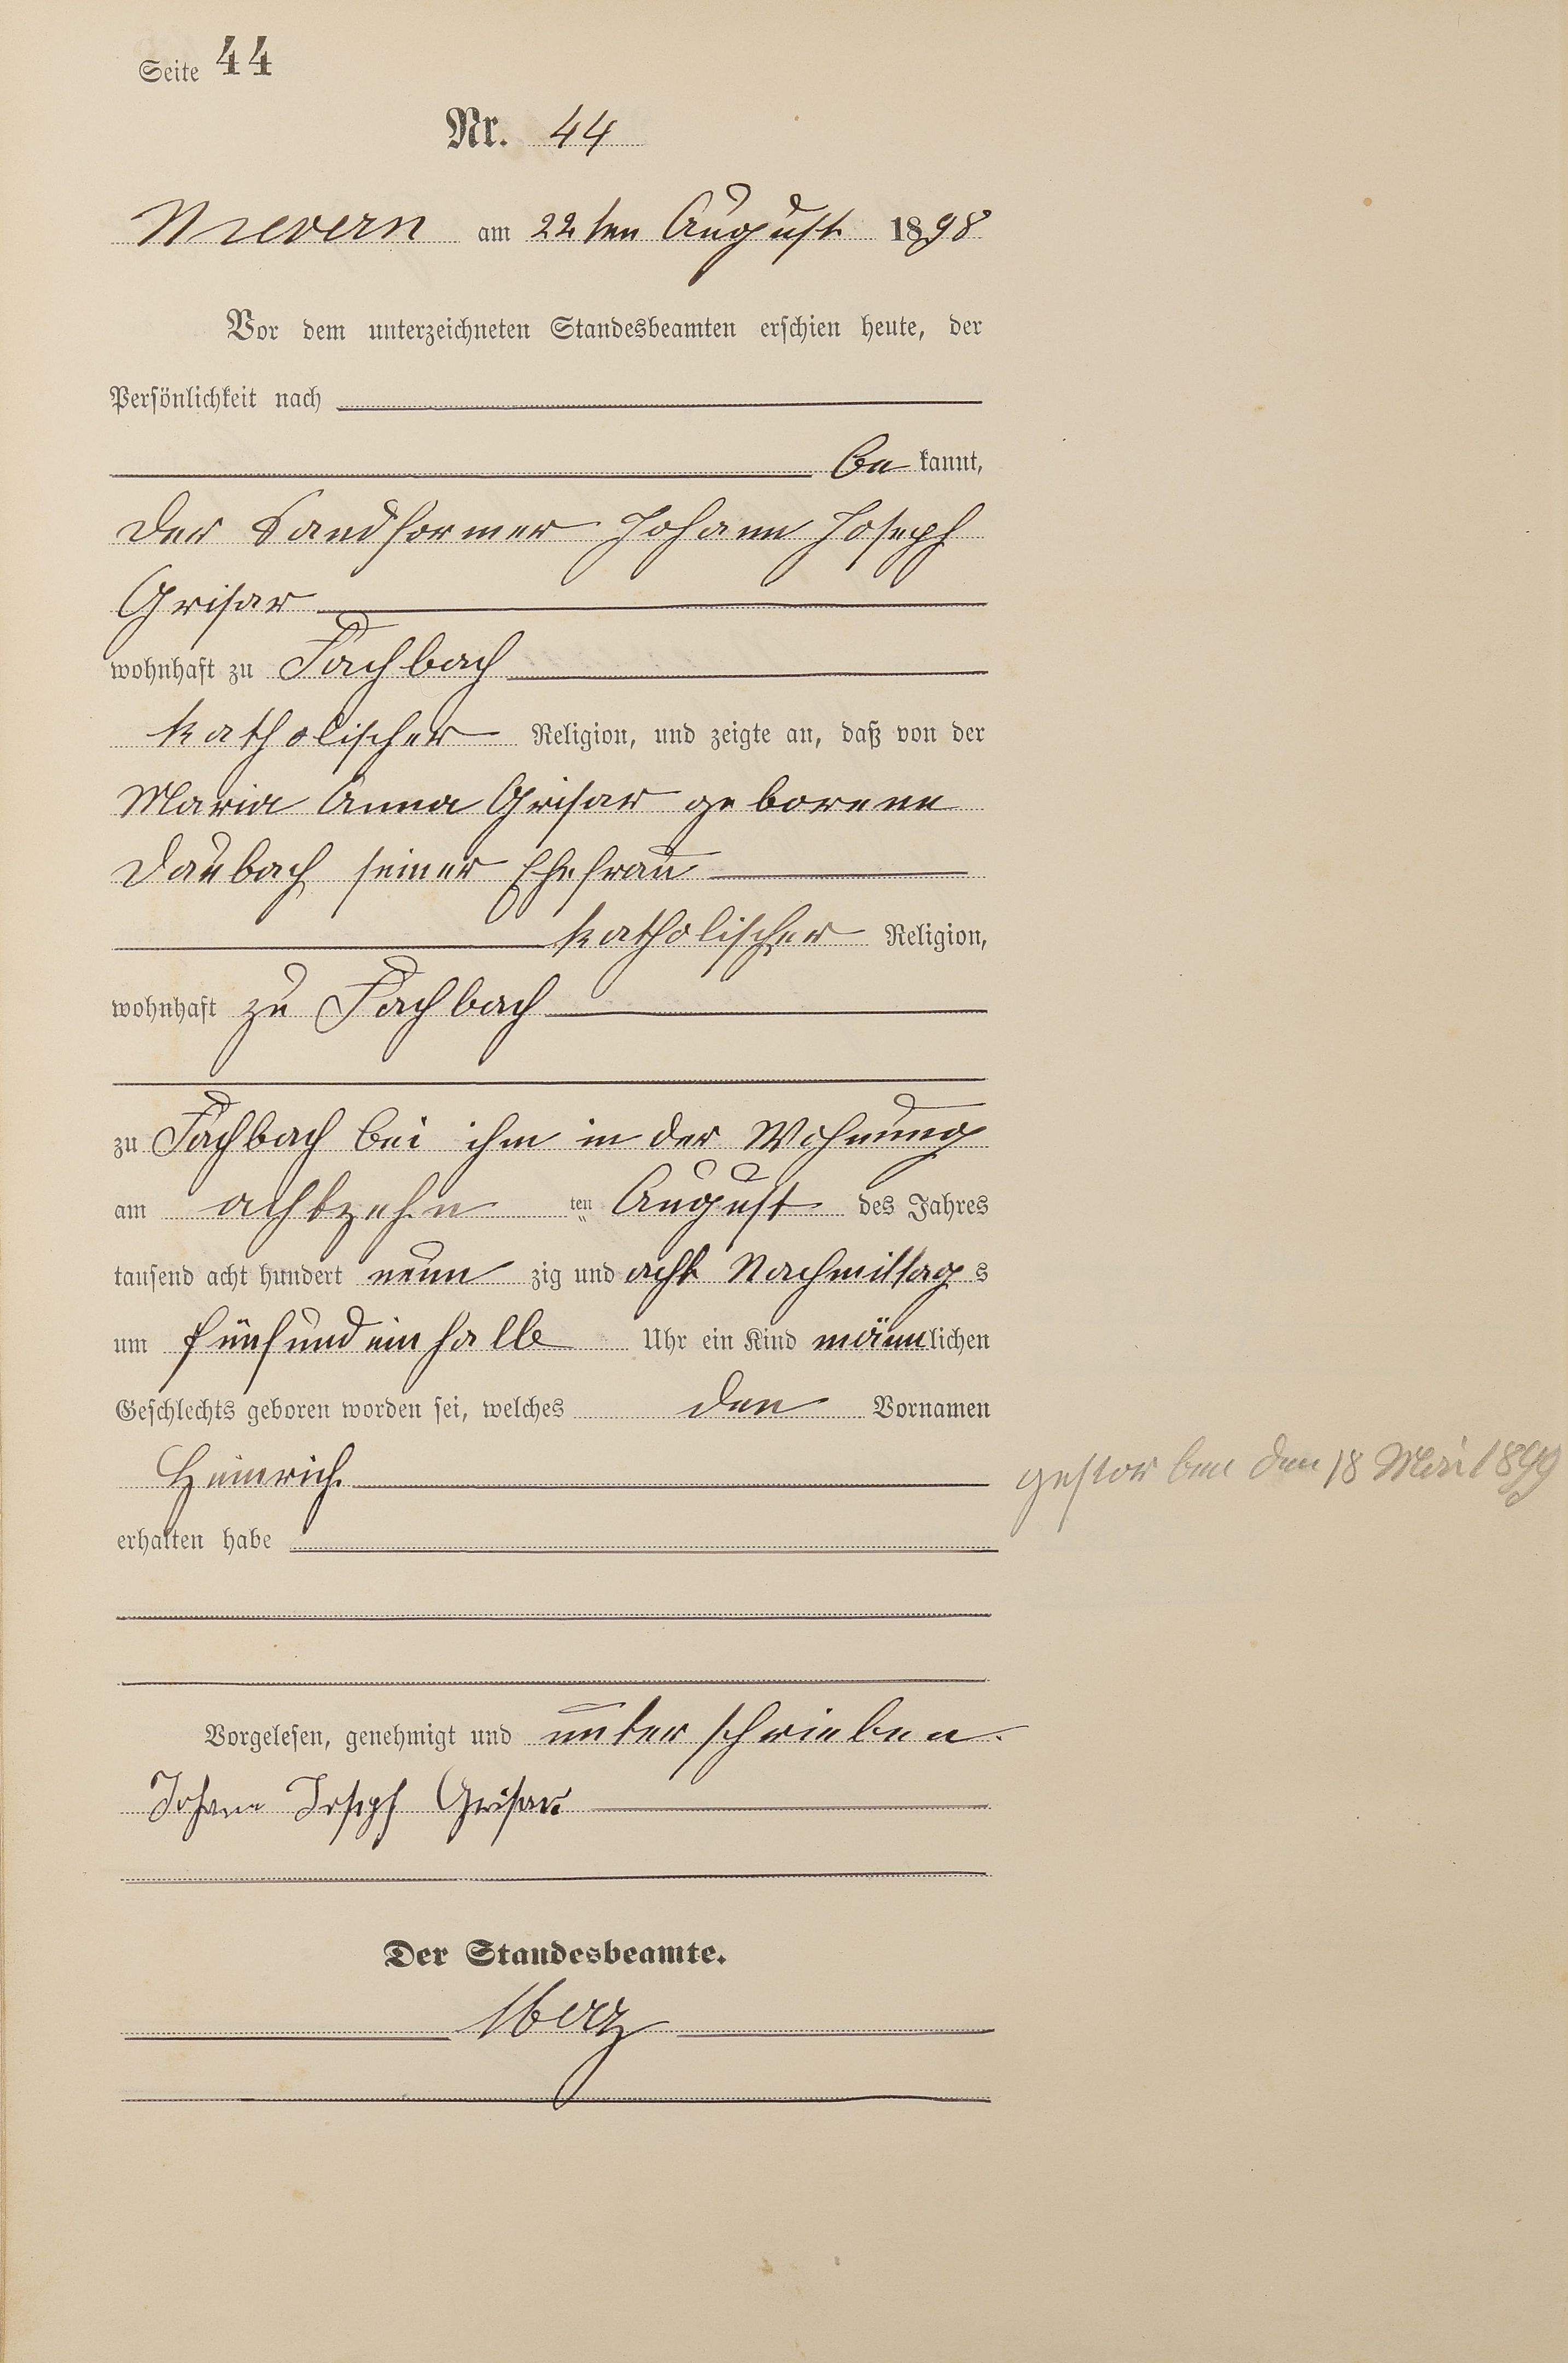 Seite 44
Nr. 44
Nievern am 22ten August 1898
Vor dem unterzeichneten Standesbeamten erschien heute, der
Persönlichkeit nach
be kannt,
der Sandformer Johann Joseph
Grisar
wohnhaft zu Fachbach
katholischer Religion, und zeigte an, daß von der
Maria Anna Grisar geborene
Daubach seiner Ehefrau
katholischer Religion,
wohnhaft zu Fachbach
zu Fachbach bei ihm in der Wohnung
am achtzehn ten August des Jahres
tausend acht hundert neun zig und acht Nachmittag s
um fünfundeinhalb Uhr ein Kind männlichen
Geschlechts geboren worden sei, welches den Vornamen
Heinrich
gestorben den 18 Mai 1899
erhalten habe
Vorgelesen, genehmigt und unterschrieben.
Johann Joseph Grisar
Der Standesbeamte.